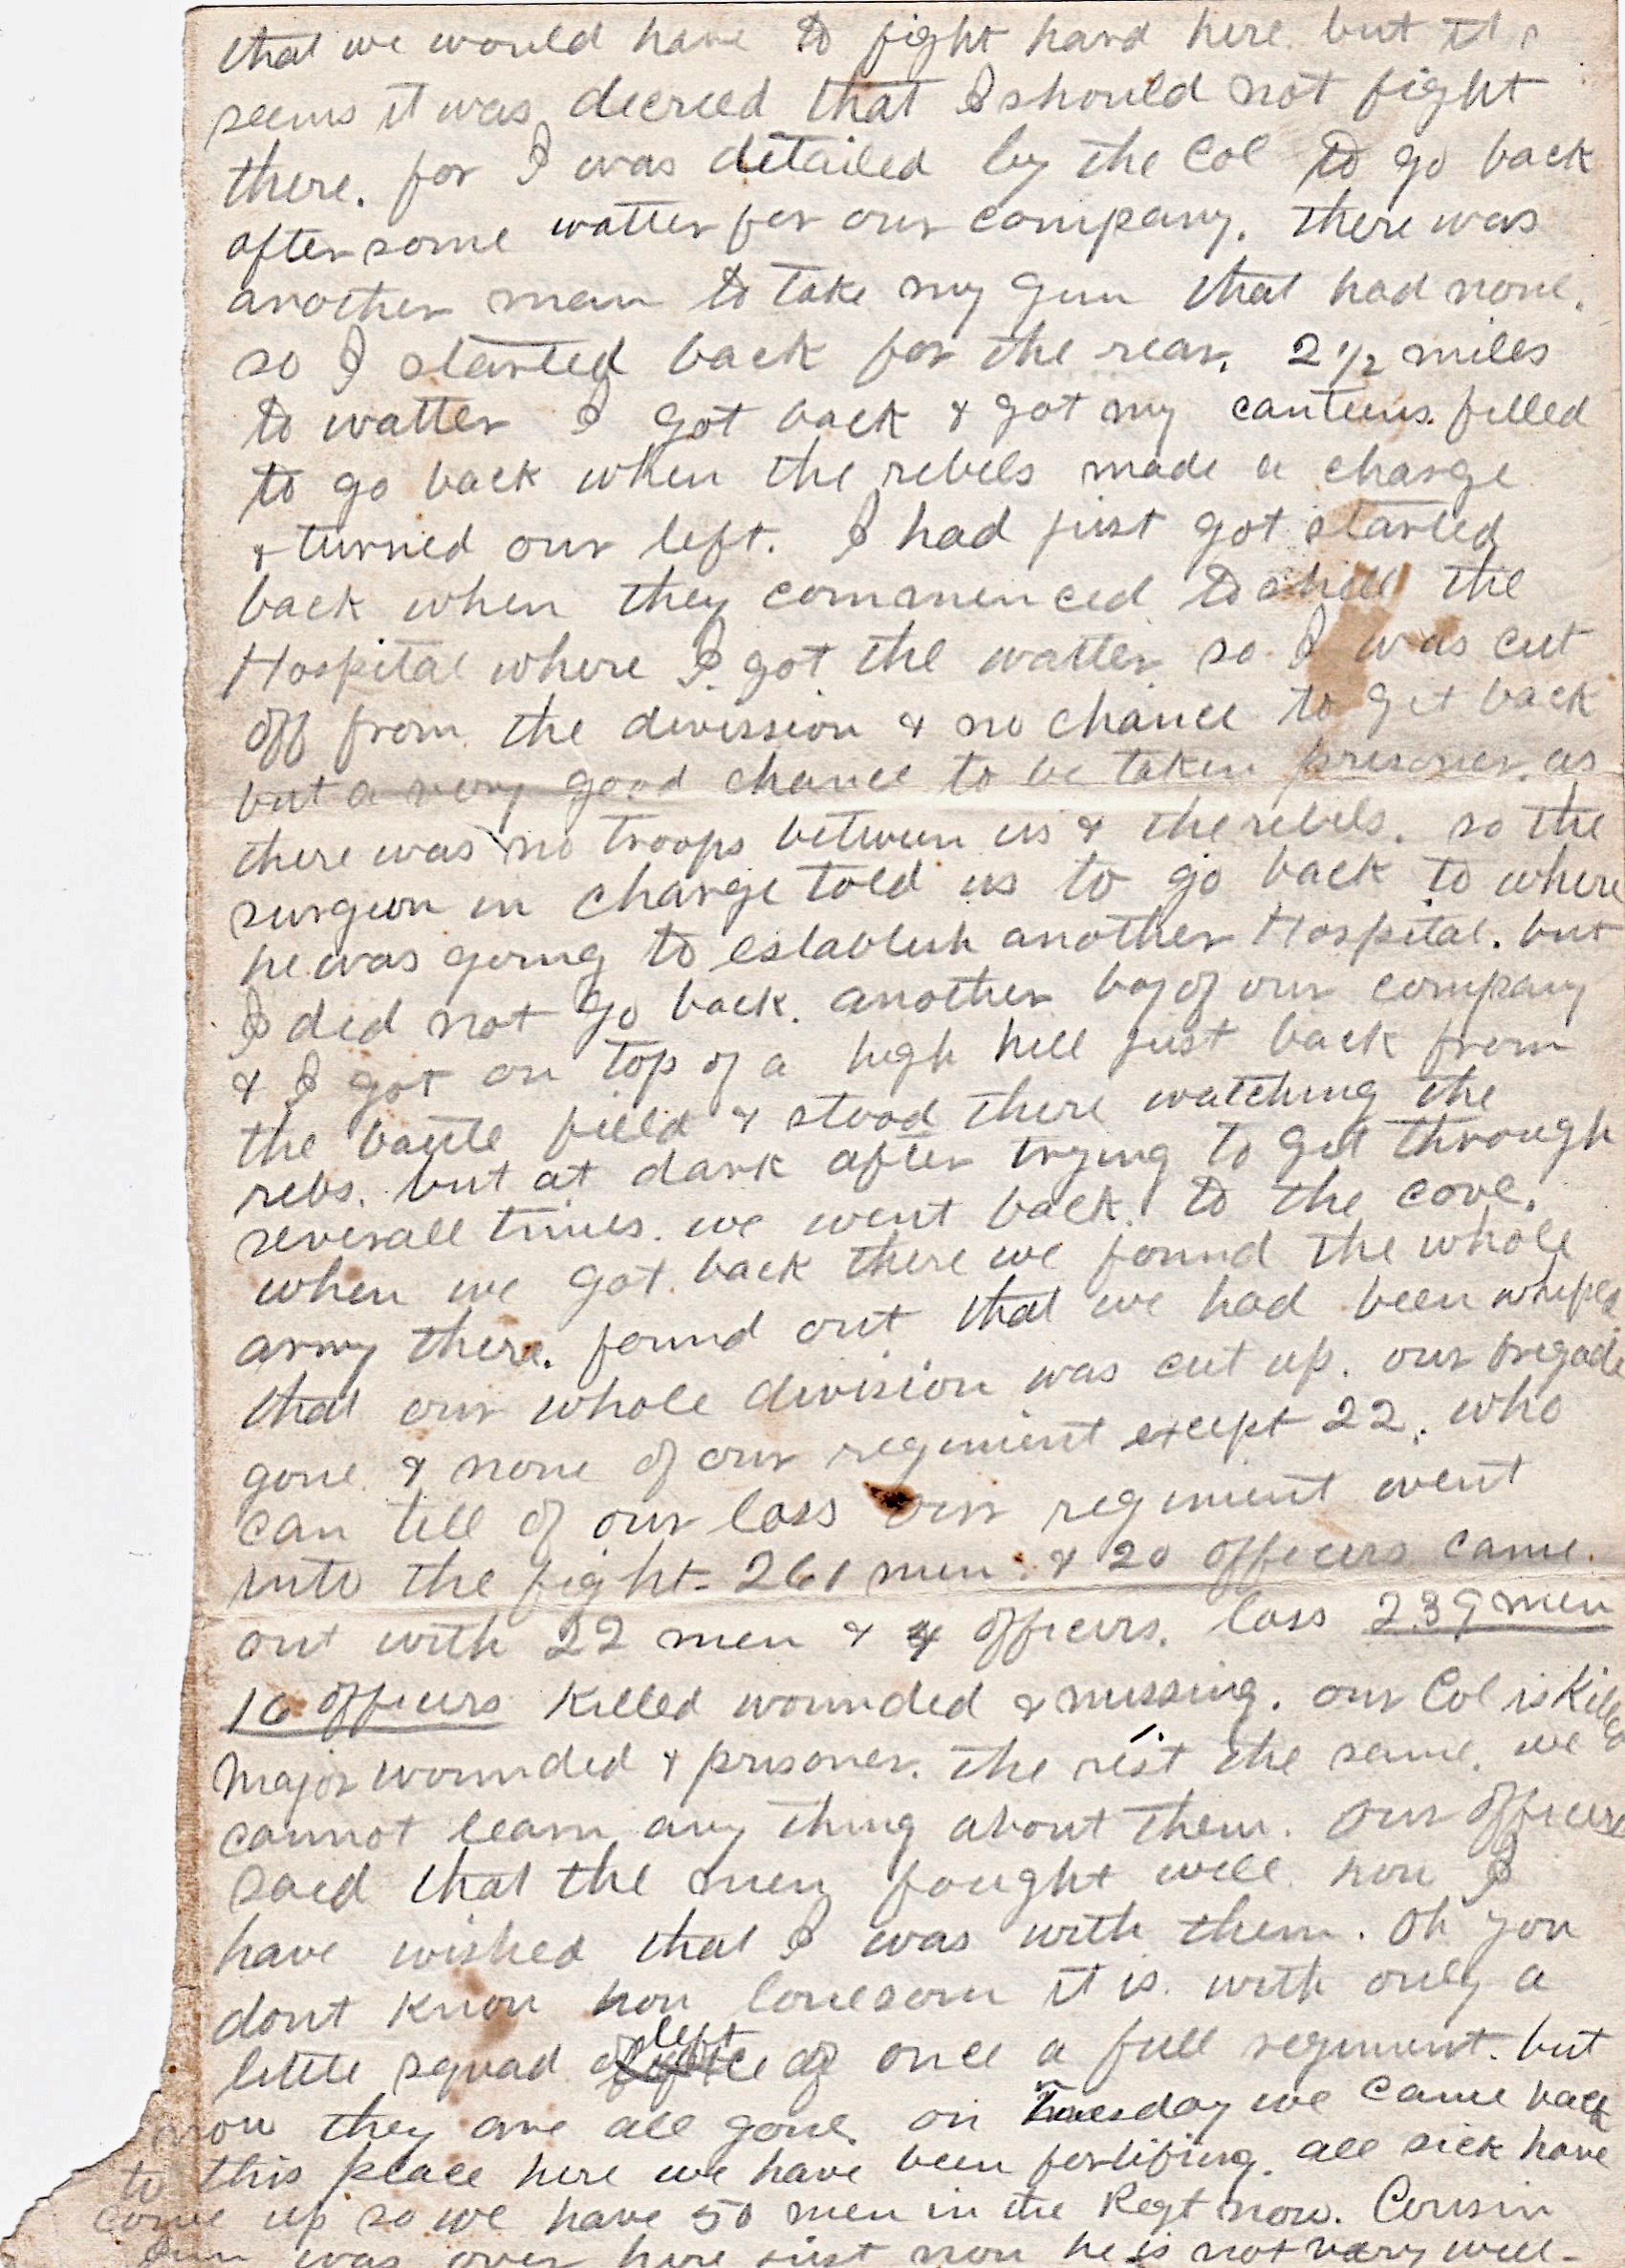 that we would have to fight hard here. but it
seems it was decreed that I should not fight
there. for I was detailed by the Col to go back
after some watter for our company. there was
another man to take my gun that had none.
so I started back for the rear. 2 1/2 miles
to watter I got back & got my canteens filled
to go back when the rebels made a charge
& turned our left. I had just got started
back when they commenced to shell the
Hospital where I got the watter so I was cut
off from the division & no chance to get back
but a very good chance to be taken prisoner. as
there was no troops between us & the rebels. so the
surgeon in charge told us to go back to where
he was going to establish another Hospital. but
I did not go back. another boy of our company
& I got on top of a high hill just back from
the battle field & stood there watching the
rebs. but at dark after trying to get through
severall times. we went back. to the cove.
when we got back there we found the whole
army there. found out that we had been whiped
that our whole division was cut up. our brigade
gone & none of our regiment except 22. who
can tell of our loss our regiment went
into the fight - 261 men & 20 officers came
out with 22 men & 4 officers. loss 239 men
16 officers killed wounded & missing. our Col is killed
Major wounded & prisoner. the rest the same. we
cannot learn any thing about them. our officers
said that the men fought well how I
have wished that I was with them. Oh you
dont know how lonesom it is. with only a
little squad left of once a full regiment. but
now they are all gone. on Tuesday we came back
to this place here we have been fortifing. all sick have
come up so we have 50 men in the Regt now. Cousin
was over here just now he is not very well